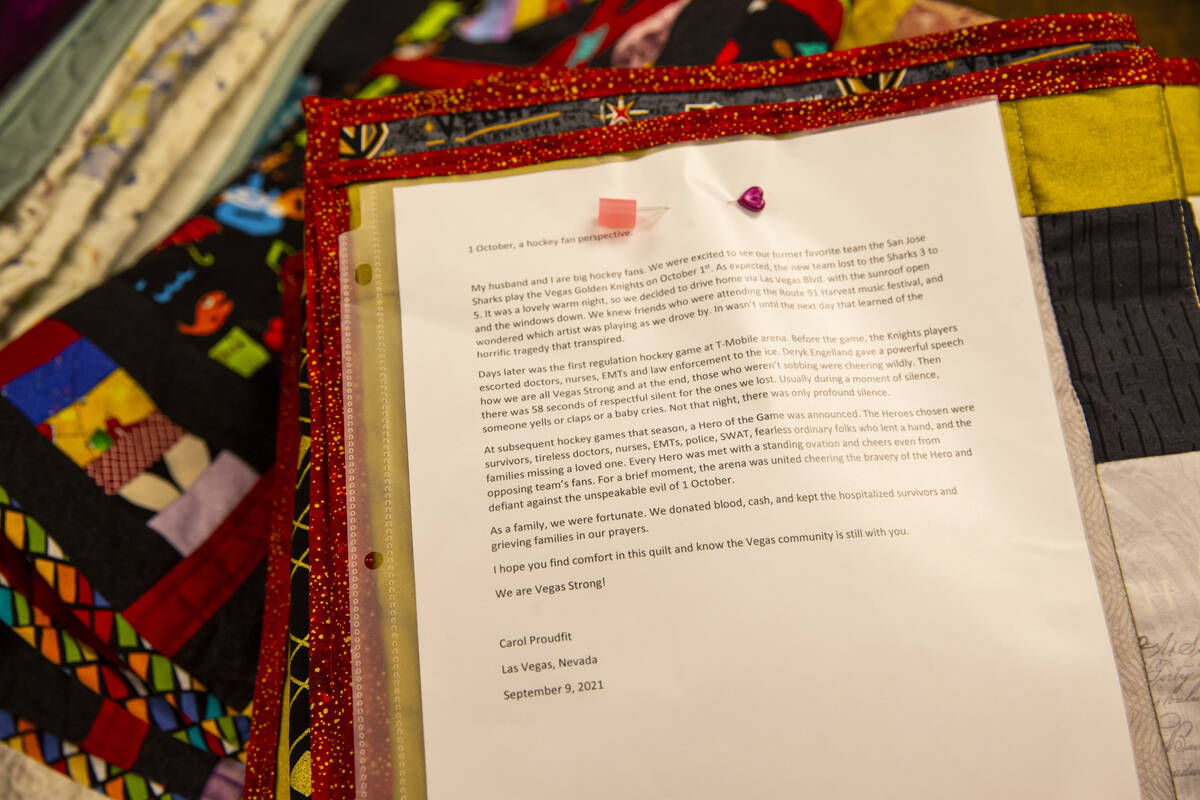 VEGAS
1 October, a hockey fan perspective.
My husband and I are big hockey fans. We were excited to see our former favorite team the San Jose
Sharks play the Vegas Golden Knights on October 1st. As expected, the new team lost to the Sharks 3 to
5. It was a lovely warm night, so we decided to drive home via Las Vegas Blvd. with the sunroof open
and the windows down. We knew friends who were attending the Route 91 Harvest music festival, and
wondered which artist was playing as we drove by. In wasn't until the next day that learned of the
horrific tragedy that transpired.
Days later was the first regulation hockey game at T-Mobile arena. Before the game, the Knights players
escorted doctors, nurses, EMTs and law enforcement to the ice. Deryk Engelland gave a powerful speech
how we are all Vegas Strong and at the end, those who weren't sobbing were cheering wildly. Then
there was 58 seconds of respectful silent for the ones we lost. Usually during a moment of silence,
someone yells or claps or a baby cries. Not that night, there was only profound silence.
At subsequent hockey games that season, a Hero of the Game was announced. The Heroes chosen were
survivors, tireless doctors, nurses, EMTs, police, SWAT, fearless ordinary folks who lent a hand, and the
families missing a loved one. Every Hero was met with a standing ovation and cheers even from
opposing team's fans. For a brief moment, the arena was united cheering the bravery of the Hero and
defiant against the unspeakable evil of 1 October.
As a family, we were fortunate. We donated blood, cash, and kept the hospitalized survivors and
grieving families in our prayers.
I hope you find comfort in this quilt and know the Vegas community is still with you.
We are Vegas Strong!
Carol Proudfit
Las Vegas, Nevada
September 9, 2021